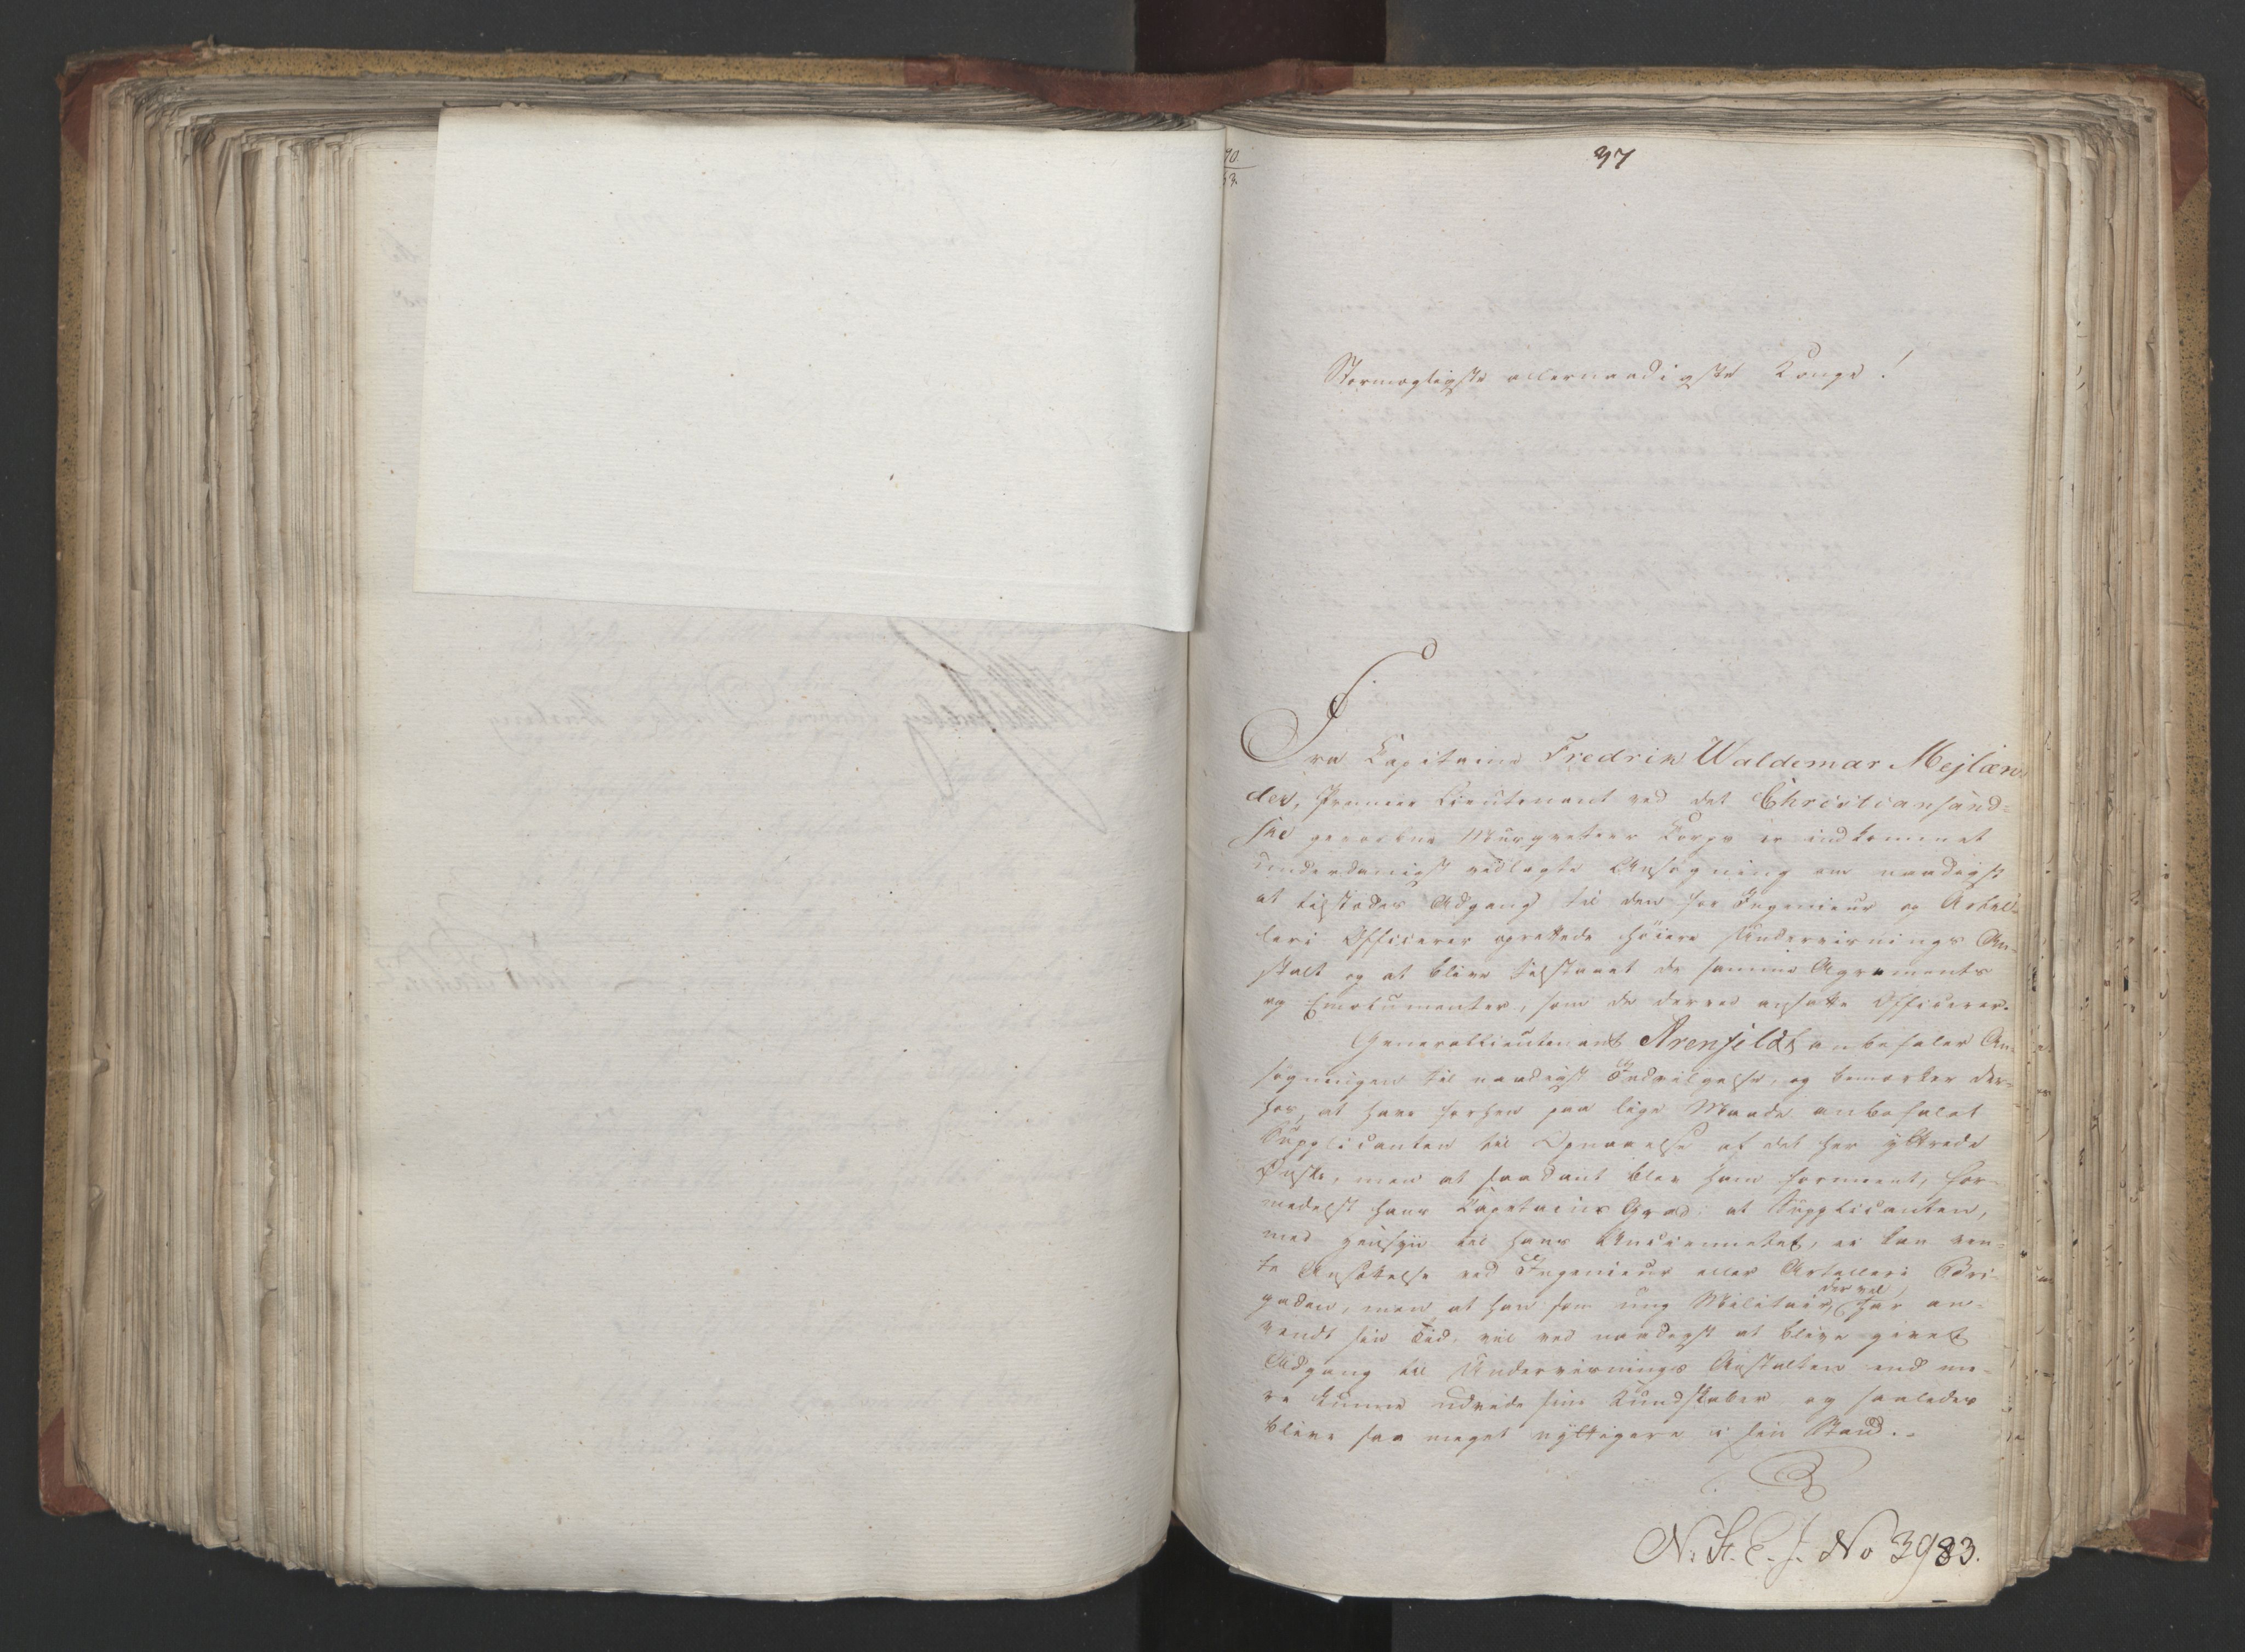 37
Stormægtigste allernaadigste Konge!
Fra Capitaine Fredrik Waldemar Mejlæn-
der, Premier Lieutenant ved det Christiansand-
ske gevorbne Musqueteer Corps er indkommet
underdanigst vedlagte Ansøgning om naadigst
at tilstædes Adgang til den for Ingenieur og Artil-
leri Officerer oprettede høiere Undervisnings An-
stalt og at blive tilstaaet de samme Agrements
og Emolumenter, som de derved ansatte Officerer.
Generallieutenant Arenfeldt anbefaler An-
søgningen til naadigst Indvilgelse, og bemærker der-
hos, at have forhen paa lige Maade anbefalet
Supplicanten til Opnaaelse af det her yttrede
Ønske, men at saadant blev ham formeent, for-
medelst hans Capitains Grad; at Supplicanten,
med Hensyn til hans Anciennetet, ei kan ven-
te Ansættelse ved Ingenieur eller Artilleri Bri-
gaden, men at han som ung Militair, der vel har an-
vendt sin Tid, vil ved naadigst at blive givet
Adgang til Undervisnings Anstalten end me-
re kunne udvide sine Kundskaber og saaledes
blive saa meget nyttigere i sin Stand.
N. St. C. J. No 3983.